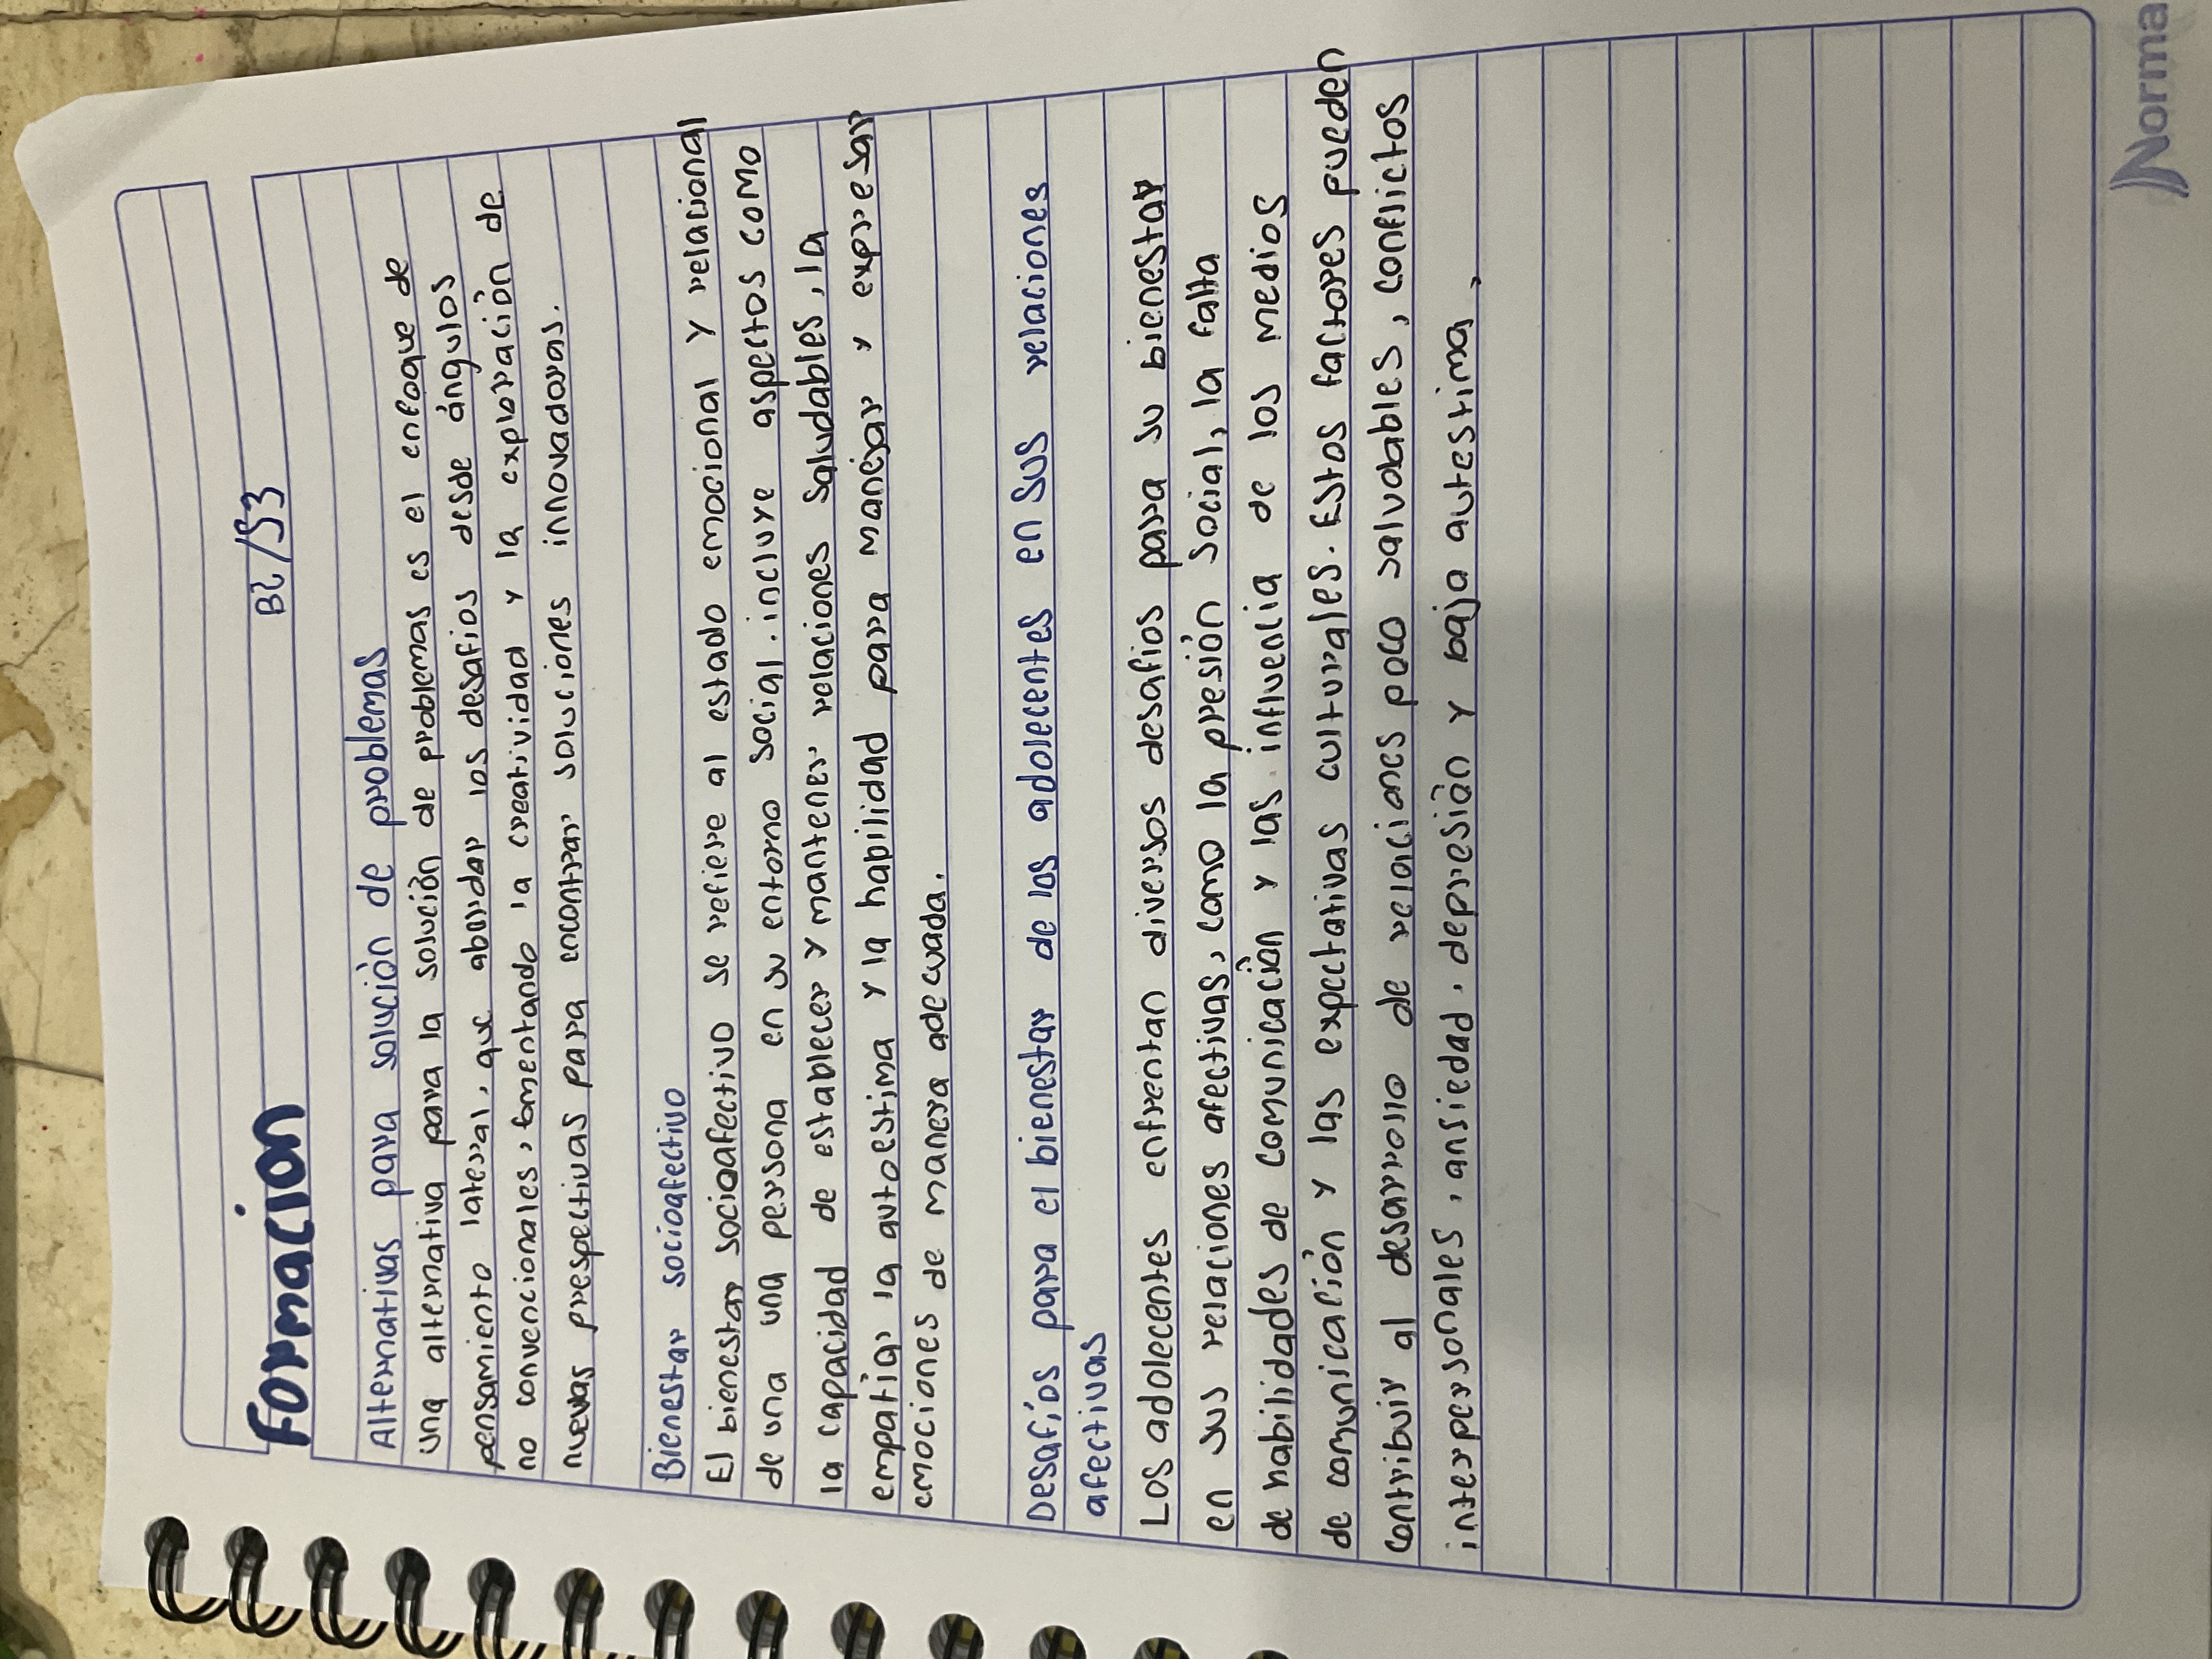 Formación
B2/S3
Alternativas para solución de problemas
una alternativa para la solución de problemas es el enfoque de
pensamiento lateral, que abordar los desafios desde ángulos
no convencionales, fomentando la creatividad y la exploración de
nuevas prespectivas para encontrar soluciones innovadoras.
Bienestar socioafectivo
El bienestar socioafectivo se refiere al estado emocional y relacional
de una una persona en su entorno social. incluye aspectos como
la capacidad de establecer y mantener relaciones saludables, la
empatia, la autoestima y la habilidad para manejar y expresar
emociones de manera adecuada.
Desafíos para el bienestar de los adolecentes en sus relaciones
afectivas
Los adolecentes enfrentan diversos desafios para su bienestar
en sus relaciones afectivas, como la presión social, la falta
de habilidades de comunicación y las influencia de los medios
de comunicación y las expectativas culturales. Estos factores pueden
contribuir al desarrollo de relaciones poco saluables, conflictos
interpersonales, ansiedad, depresión y baja autestima,
Norma